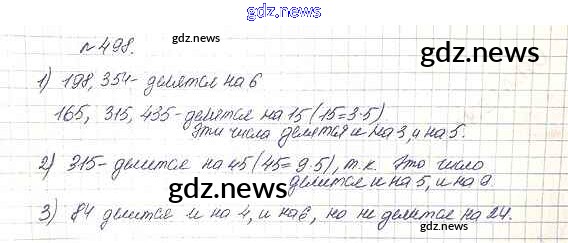 gdz.news
№498.
gdz.news
gdz.news
1) 198, 354- делятся на 6
165, 315, 435- делятся на 15 (15=3·5)
Эти числа делятся и на 3, и на 5.
gdz.news
2) 315- делится на 45 (45=9·5), т.к. это число
делится и на 5, и на 9.
gdz.news
gdz.news
3) 84 делится и на 4, и на 6, но не делится на 24.
gdz.news